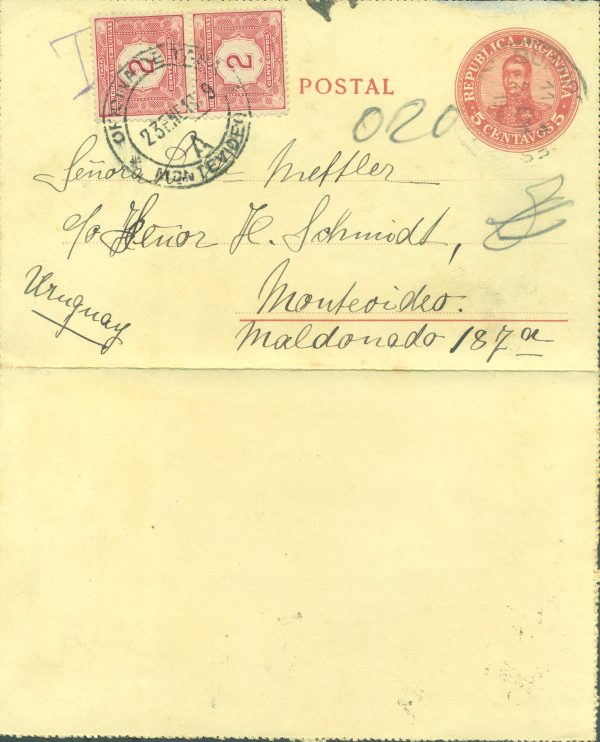 T
2 CENTESIMOS
2 CENTESIMOS
23 ENE
A
MONTEVIDEO
POSTAL
REPUBLICA ARGENTINA
5 CENTAVOS 5
020
Señora Mettler
c/o Señor H. Schmidt,
Montevideo.
Uruguay
Maldonado 187a